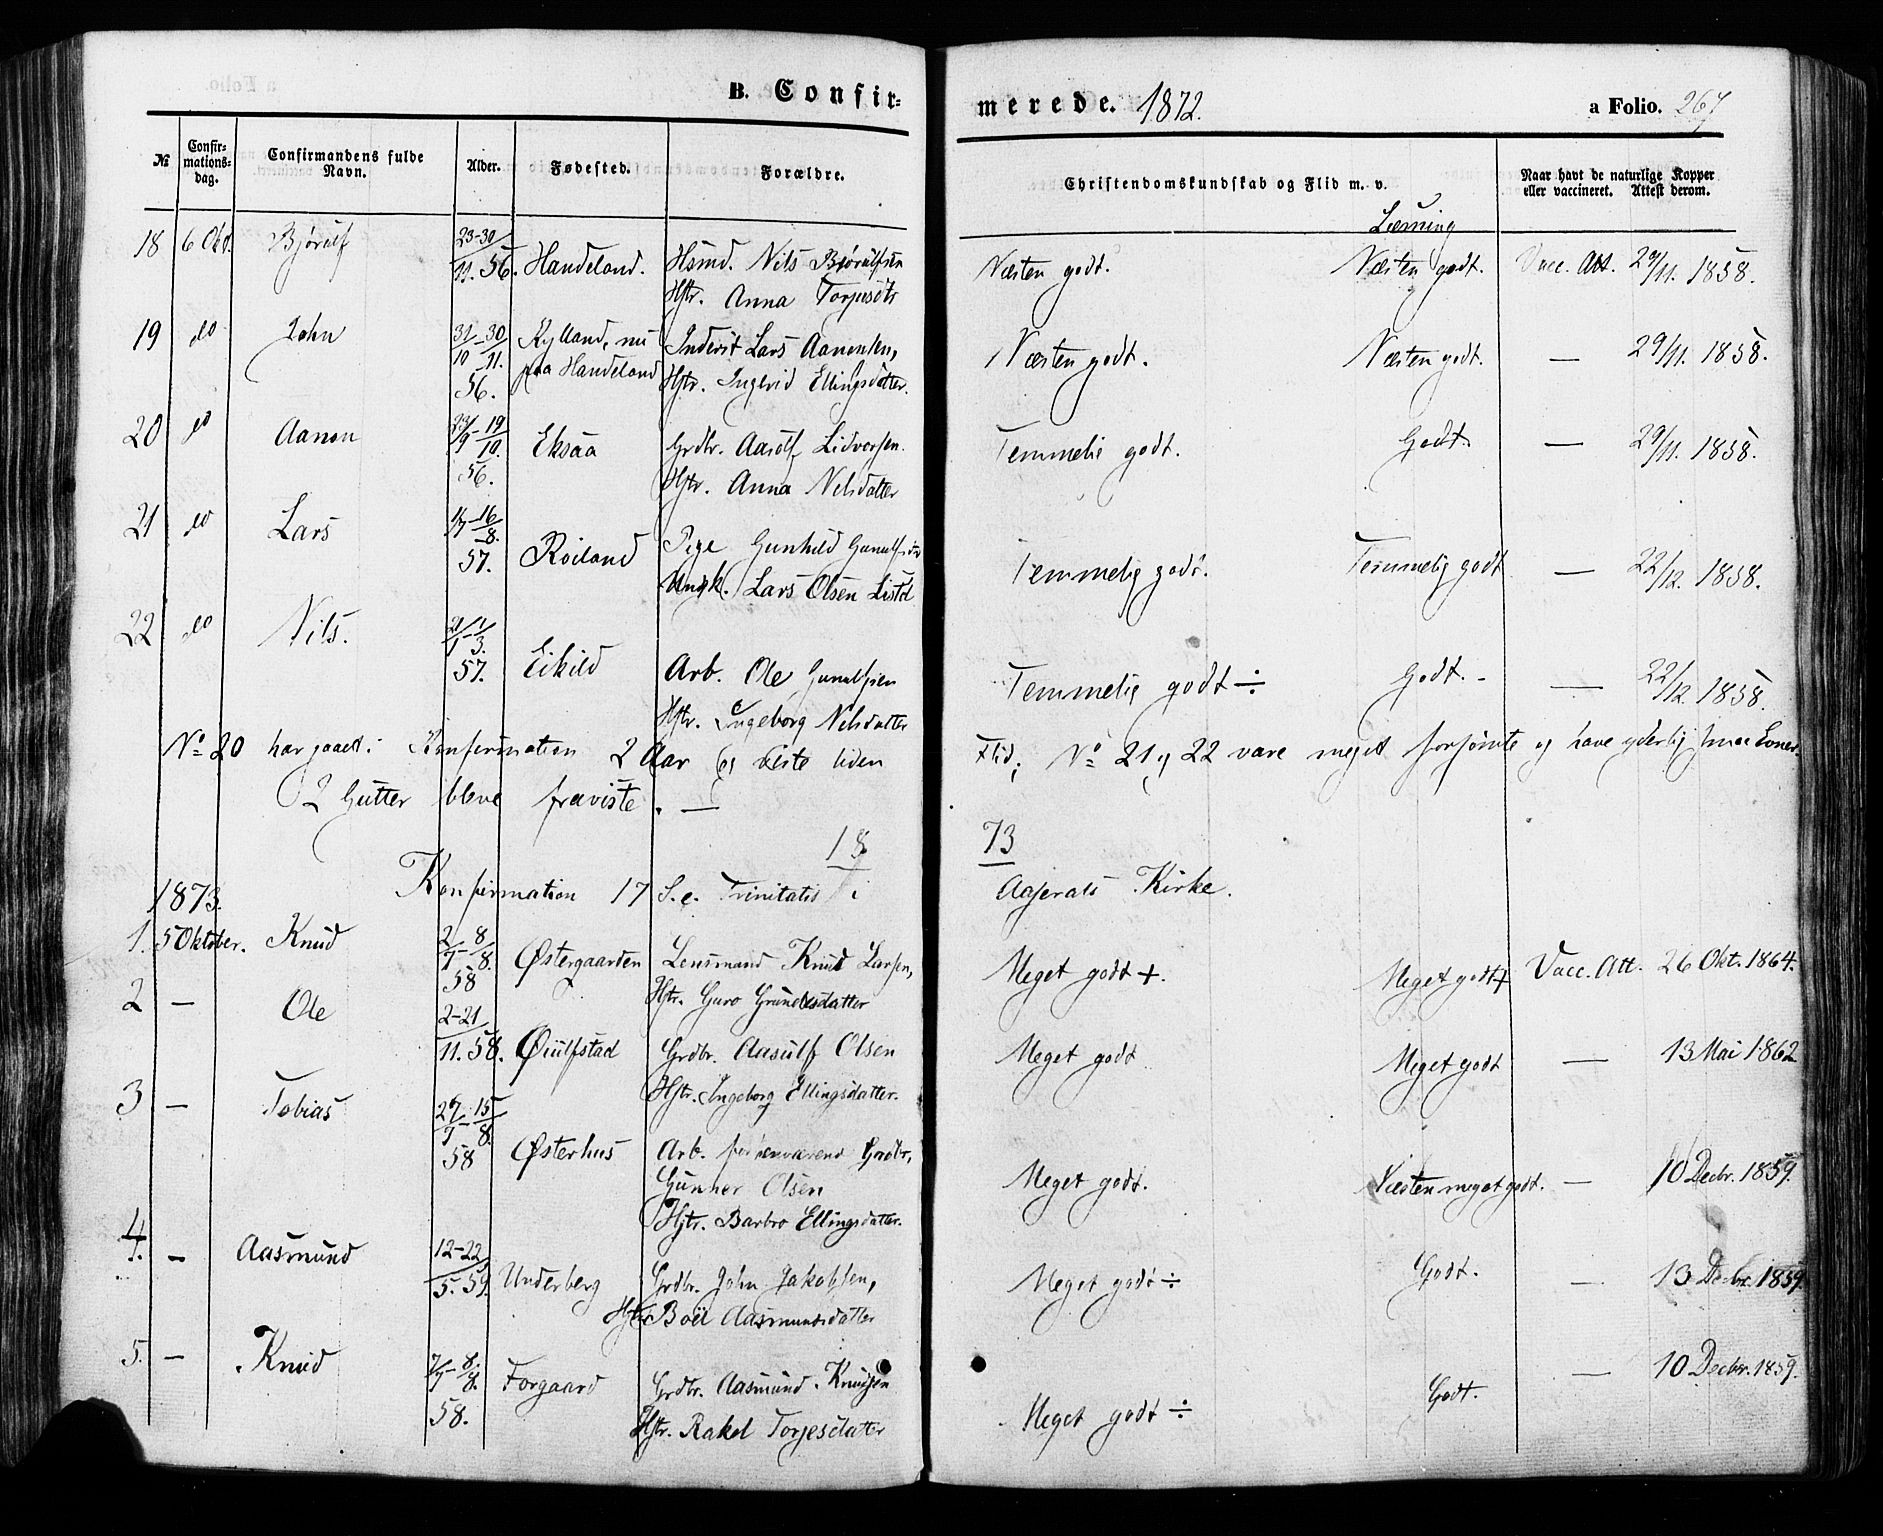 B. Confir-
merede. 1872.
a Folio. 267
№ Confir-mations-dag. Confirmandens fulde Navn. Alder. Fødested. Forældre. Christendomskundskab og Flid m. v. Naar havt de naturlige Kopper eller vaccineret. Attest derom.
Læsning
18 6 Okt. Bjørulf 23-30/11. 56. Handeland. Hsmd. Nils Bjørulfsen Næsten godt. Næsten godt. Vacc. Att. 29/11. 1858.
Hstr. Anna Torjusdtr
19 do John 31/10-30/11. 56. Rylland, nu paa Handeland Inderst Lars Aanensen, Næsten godt. Næsten godt. — 29/11. 1858.
Hstr. Ingerid Ellingsdatter.
20 do Aanen 29/9-19/10. 56. Eksaa Grdbr. Aasulf Lidvorsen. Temmelig godt. Godt. — 29/11. 1858.
Hstr. Anna Nelsdatter
21 do Lars 57. Røiland Pige Gunhild Temmelig godt. Temmelig godt — 22/12. 1858.
Ungk. Lars Olsen
22 do Nils. 21/1-1/3. 57. Eikild Arb. Ole Gunulfsen Temmelig godt ÷ Godt. — 22/12. 1858.
Hstr. Ingeborg Nelsdatter
No 20 har gaaet i Konfirmation 2 Aar
Flid: No 21 og 22 vare meget forsømte og have yderlig smaa Evner.
2 Gutter bleve fraviste. —
18 73
Konfirmation 17 S. e. Trinitatis i Aaserals Kirke.
1873.
1. 5 Oktober. Knud 2/7-8/8. 58 Østergaarden Lensmand Knud Larsen, Meget godt +. Meget godt + Vacc. Att. 26 Okt. 1864.
Hstr. Guro
2 — Ole 2-21/11. 58. Øiulfstad Grdbr. Aasulf Olsen Meget godt Meget godt — 13 Mai 1862
Hstr. Ingeborg Ellingsdatter.
3 — Tobias 27/7-15/8. 58 Østerhus Arb. forhenværend Grdbr, Meget godt. Næsten meget godt. — 10 Decbr. 1859.
Gunner Olsen
Hstr. Barbro Ellingsdatter.
4. — Aasmund 12-22/5. 59. Underberg Grdbr. John Jakobsen, Meget godt ÷ Godt. — 13 Decbr. 1859.
Hstr Boel Aasmundsdatter
5. — Knud 7/7-8/8. 58. Forgaard Grdbr. Aasmund Knudsen Meget godt ÷ Godt. — 10 Decbr. 1859.
Hstr. Rakel Torjesdatter